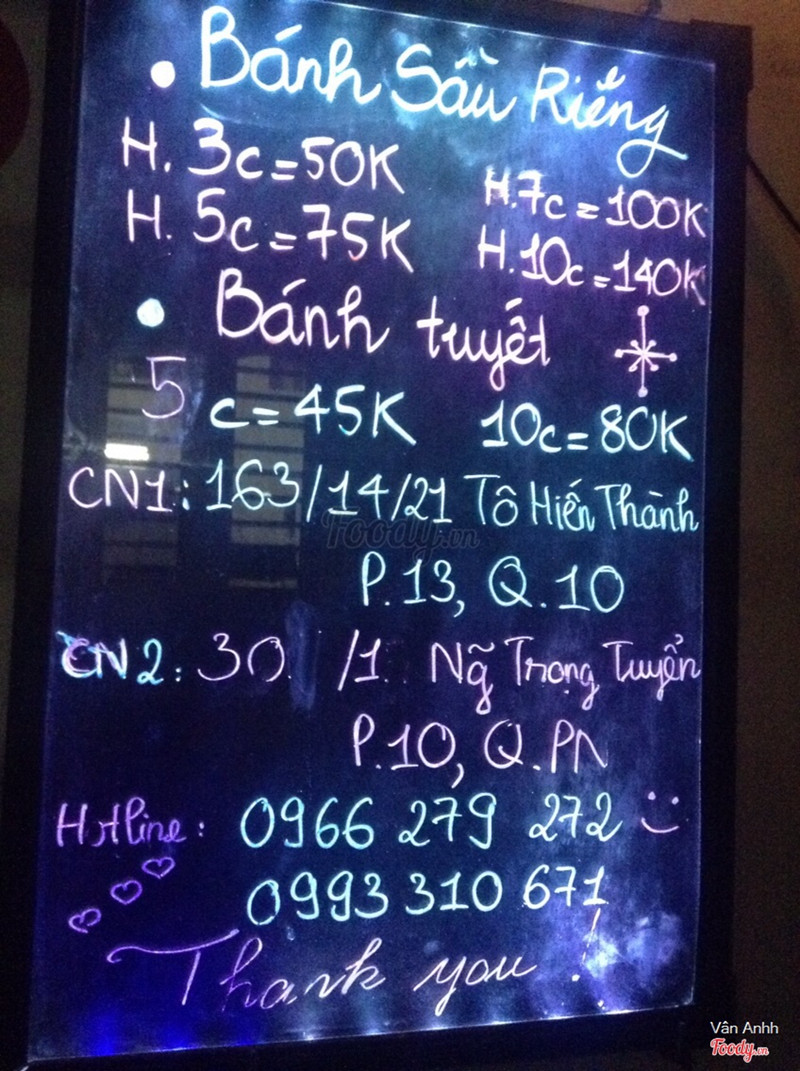 • Bánh Sầu Riêng
H. 3c = 50K
H. 7c = 100K
H. 5c = 75K
H. 10c = 140K
• Bánh tuyết
5c = 45K 10c = 80K
CN1: 163/14/21 Tô Hiến Thành
P.13, Q.10
CN2: 30 /1 Ng̃ Trọng Tuyển
P.10, Q.PN
Hotline: 0966 279 272
0993 310 671
Thank you !
Foody.vn
Vân Anhh
Foody.vn